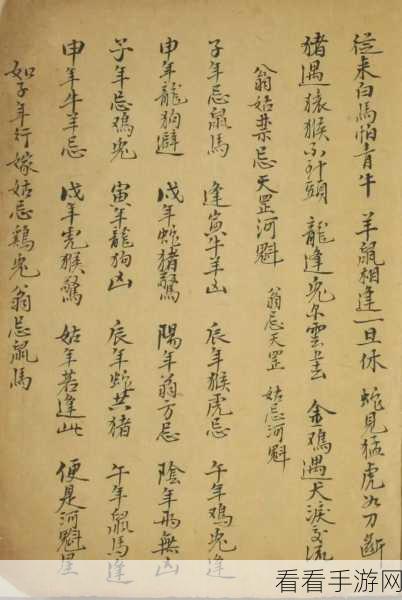 從來白馬怕青牛 羊鼠相逢一旦休 蛇見猛虎如刀斷
猪遇猿猴不到頭 龍逢兎兒雲裡去 金鳮遇犬淚交流
翁姑禁忌天罡河魁 翁忌天罡 姑忌河魁
子年忌鼠馬 逢寅牛羊凶 辰年猴虎忌 午年鳮兎逢
申年龍狗避 戌年蛇猪驚 陽年翁方忌 陰年為無凶
子年忌鳮兎 寅年龍狗凶 辰年蛇共猪 午年鼠馬逢
申年牛羊忌 戌年虎猴驚 姑年若逢此 便是河魁星
如子年行嫁姑忌鷄兎翁忌鼠馬
看看手游网